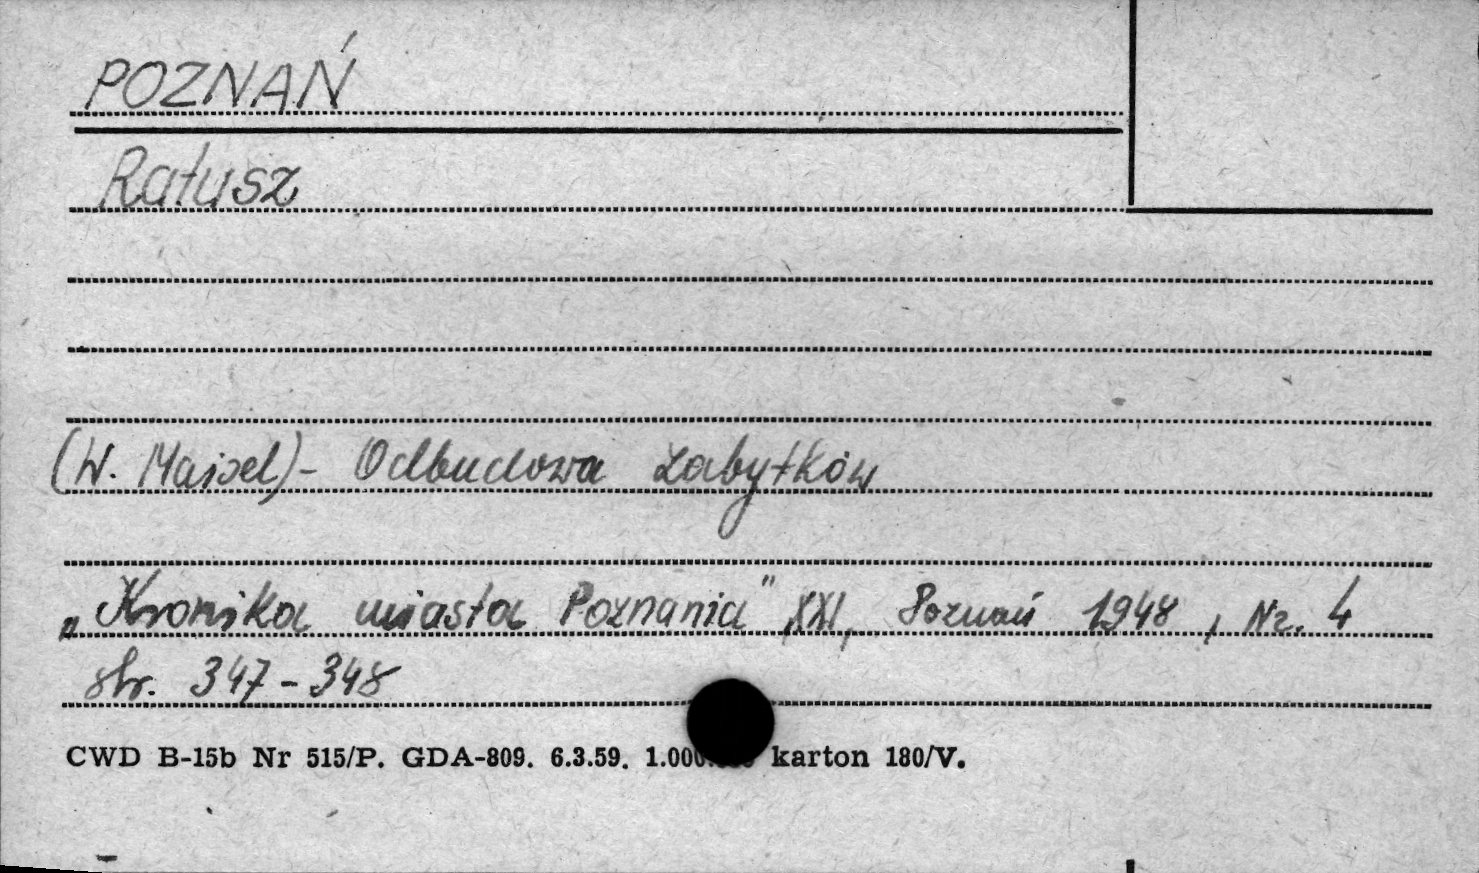 POZNAŃ
Ratusz
(W. Maisel) - Odbudowa zabytków
„Kronika miasta Poznania" XXI, Poznań 1948, Nr. 4
str. 347-348
CWD B-15b Nr 515/P. GDA-809. 6.3.59. karton 180/V.